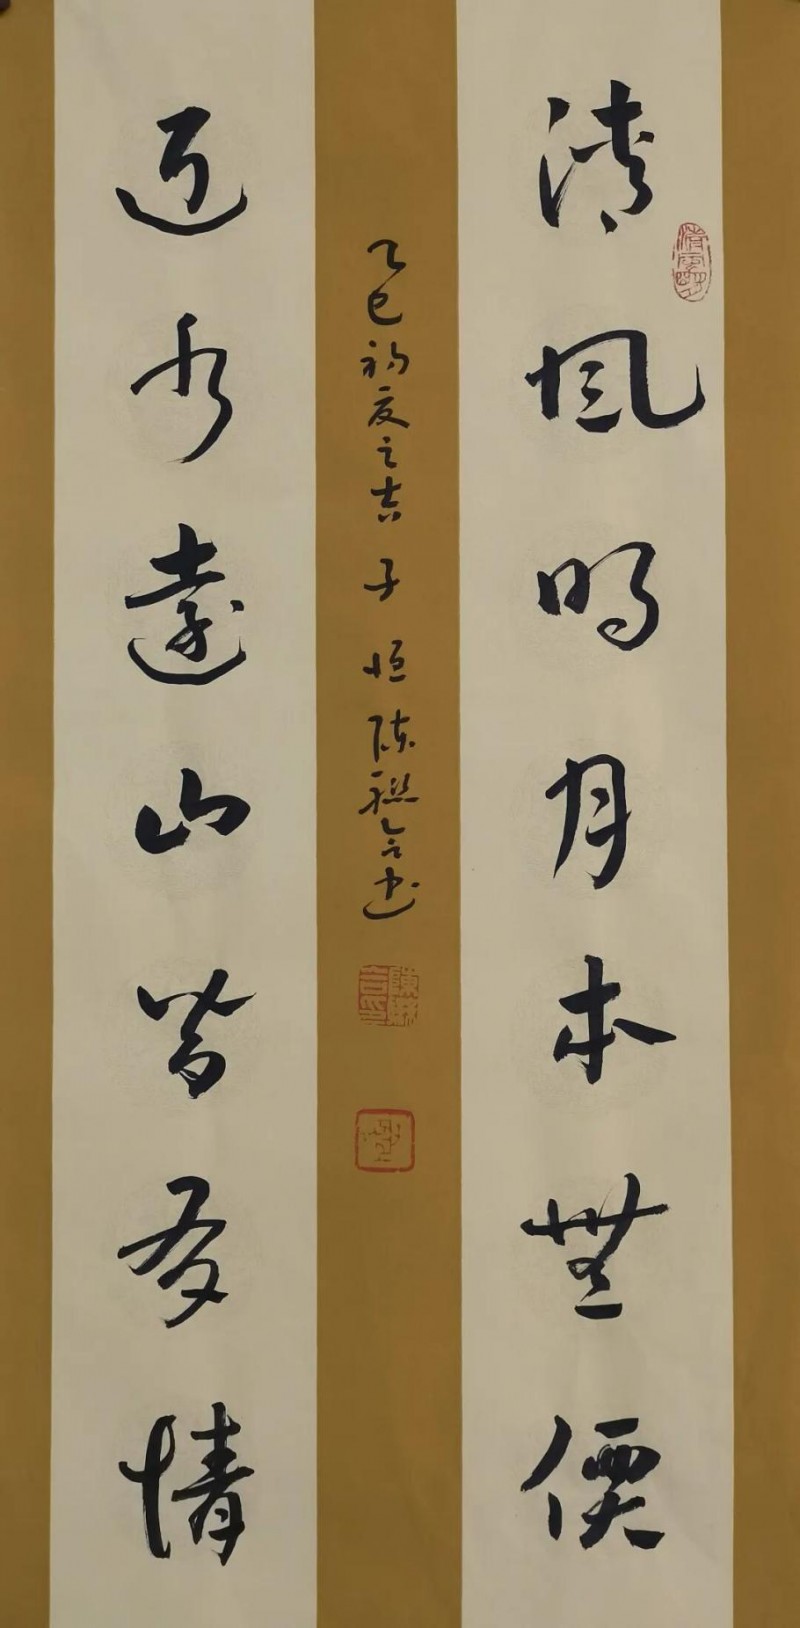 清風明月本無價
近水遠山皆有情
乙巳初夏之吉 子恒陳聯合書